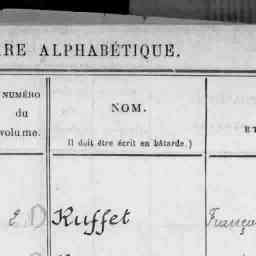 RE ALPHABÉTIQUE.
NUMÉRO
du
volume.
NOM.
(Il doit être écrit en bâtarde.)
ET
2 D Ruffet Françoi